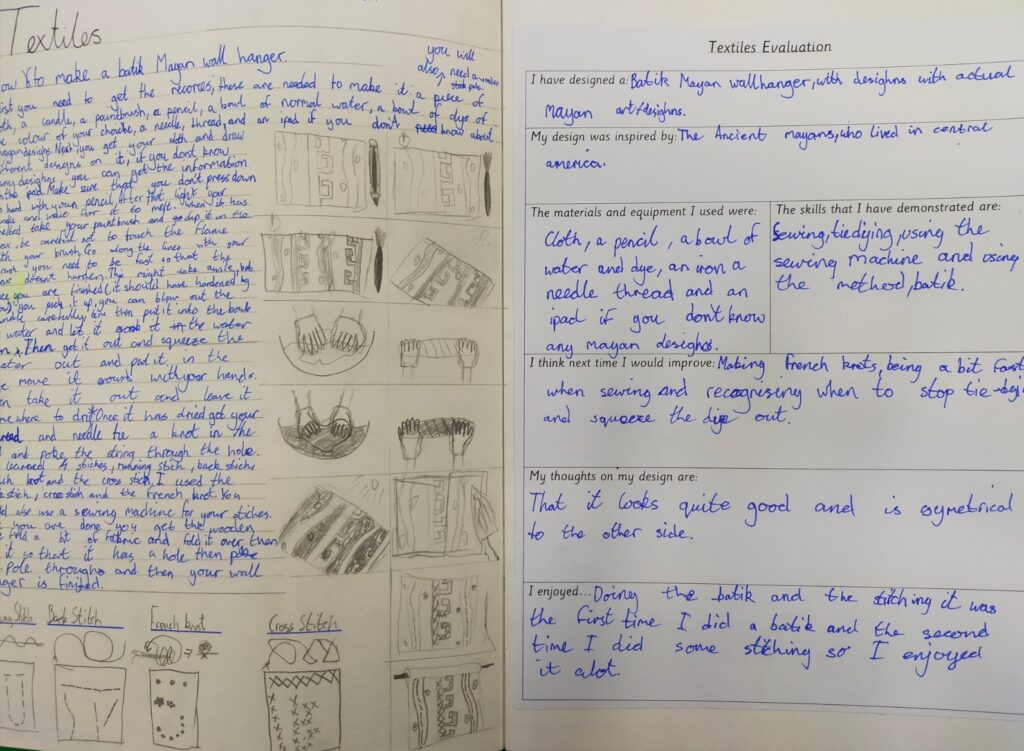 Textiles
to make a batik Mayan wall hanger.
you will
also need a wooden
pole.
you need to get the recorces, these are needed to make it: a piece of
a candle, a paintbrush, a pencil, a bowl of normal water, a bowl of dye of
colour of your choice, a needle, thread, and an ipad if you don't know about
mayan designs. Next you get your cloth and draw
different designs on it, if you don't know
any desighns you can get the information
on the ipad. Make sure that you don't press down
hard with your pencil. After that light your
candle and wait for it to melt. When it has
melted take your paintbrush and go dip it in the
wax, be careful not to touch the flame
with your brush. Go along the lines with your
you need to be fast so that the
doesn't harden. This might take awile, but
you are finished (it should have hardened by
you pick it up, you can blow out the
carefully, then put it into the bowl
water and let it soak it in the water
Then get it out and squeeze the
water out and put it in the
move it around with your hands.
take it out and leave it
where to dry. Once it has dried get your
thread and needle tie a knot in the
and poke the string through the hole.
learned 4 stiches, running stich, back stich,
knot and the cross stich. I used the
stich, cross stich and the french knot. You
also use a sewing machine for your stiches.
you are done you get the wooden
fold a bit of fabric and fold it over, then
it so that it has a hole then poke
pole through and then your wall
hanger is finished.
Stitch Back Stitch French knot Cross Stitch
Textiles Evaluation
I have designed a: Batik Mayan wallhanger, with desighns with actual
Mayan art/desighns.
My design was inspired by: The Ancient mayans, who lived in central
america.
The materials and equipment I used were:
Cloth, a pencil, a bowl of
water and dye, an iron a
needle thread and an
ipad if you dont know
any mayan desighns.
The skills that I have demonstrated are:
Sewing, tiedying, using the
sewing machine and using
the method, batik.
I think next time I would improve: Making french knots, being a bit fast
when sewing and recognising when to stop tie-
and squeeze the dye out.
My thoughts on my design are:
That it looks quite good and is symetrical
to the other side.
I enjoyed... Doing the batik and the stitching it was
the first time I did a batik and the second
time I did some stiching so I enjoyed
it alot.